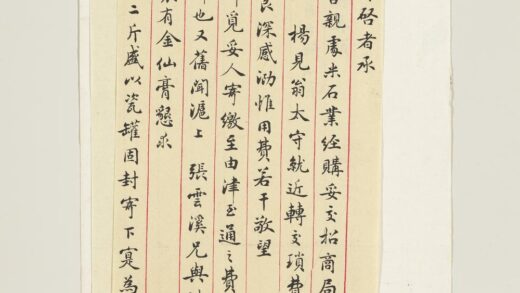 啓者承
親處米石業經購妥交招商局
楊見翁太守就近轉交瑣費
良深感泐惟用費若干敬望
覓妥人寄繳至由津至通之費
也又舊聞滬上 張雲溪兄與
有金仙膏懇求
二斤盛以瓷罐固封寄下寔為